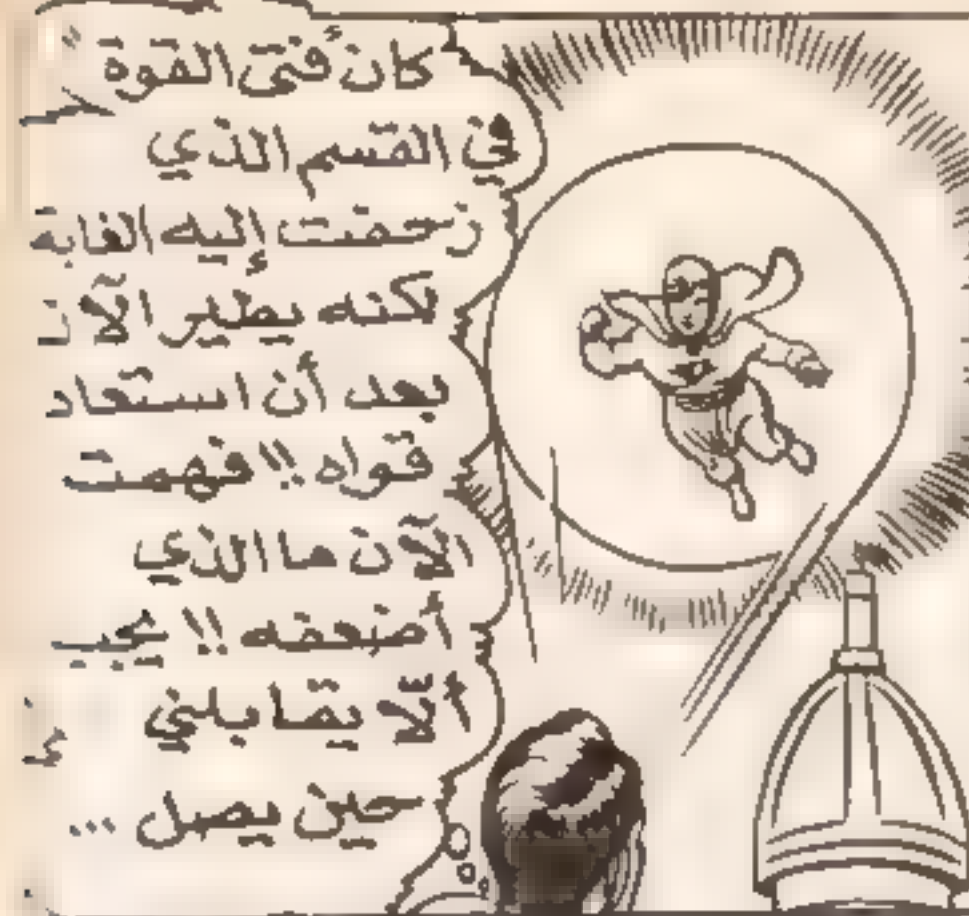 كان فتى القوة
في القسم الذي
زحفت إليه الغابة
لكنه يطير الآن
بعد أن استعاد
قواه !! فهمت
الآن ما الذي
أضعفه !! يجب
ألّا يقابلني
حين يصل ...